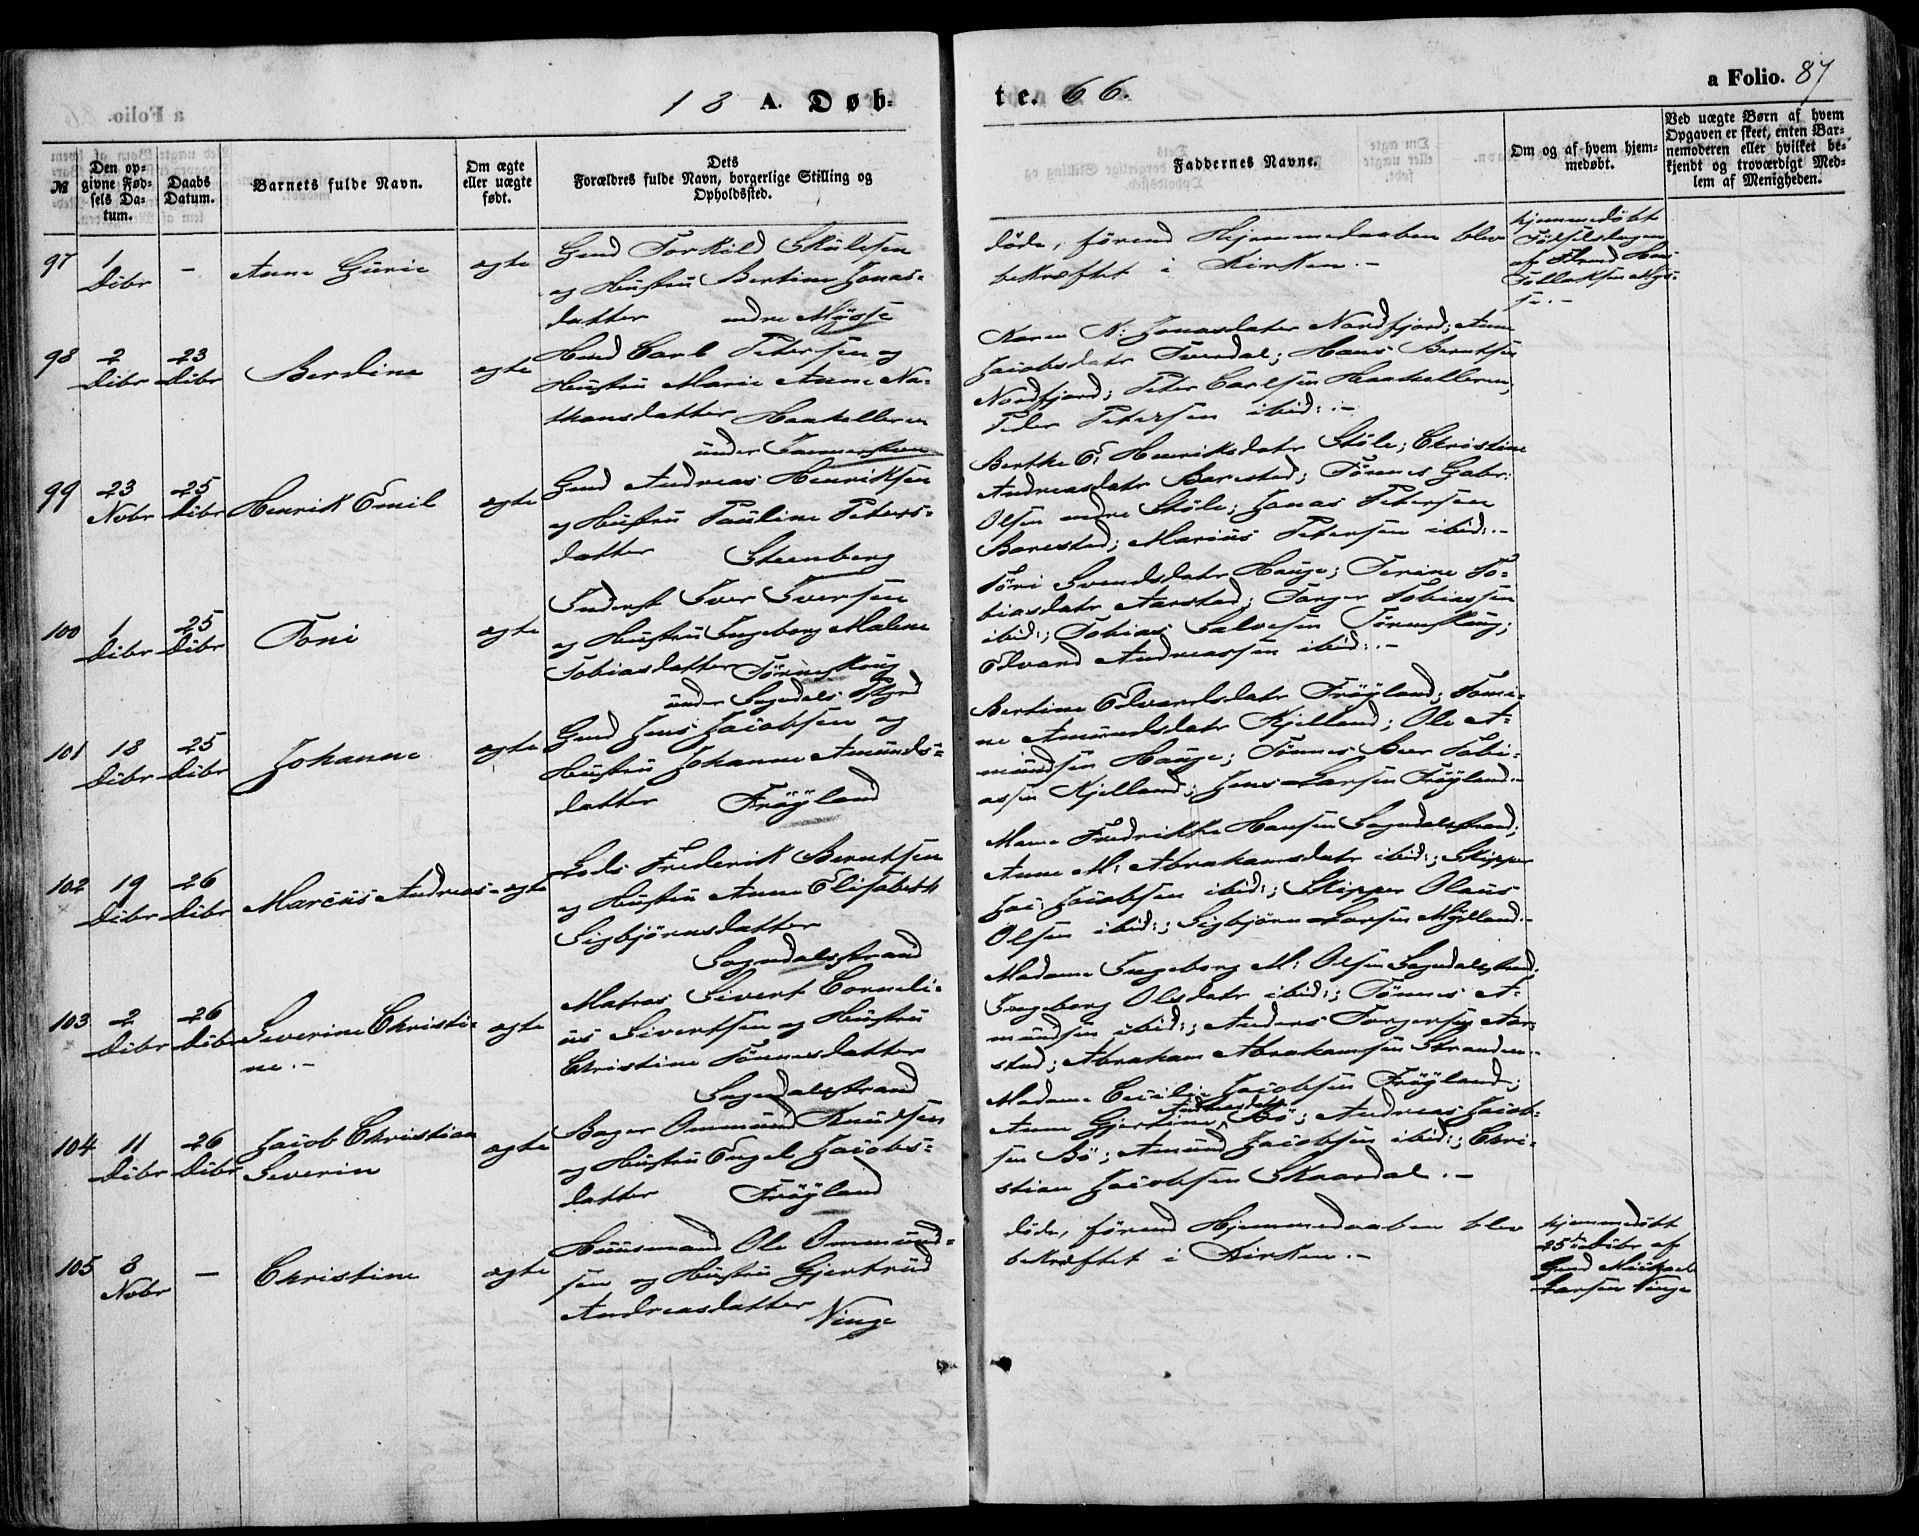 18 A. Døb-
te. 66.
a Folio. 87
№
Den op-
givne Fød-
sels Da-
tum.
Daabs
Datum.
Barnets fulde Navn.
Om ægte
eller uægte
født.
Dets
Forældres fulde Navn, borgerlige Stilling og
Opholdssted.
Faddernes Navne.
Om og af hvem hjem-
medøbt.
Ved uægte Børn af hvem
Opgaven er skeet, enten Bar-
nemoderen eller hvilket be-
kjendt og troværdigt Med-
lem af Menigheden.
97
1
Dcbr
-
Anne Gurie
ægte
Gmd Torkild Skulesen
og Hustru Bertine Jonas-
datter
Mysse
døde, førend Hjemmedaaben blev
bekræftet i Kirken.-
hjemmedøbt
Fødselsdagen
98
2
Dcbr
23
Dcbr
Berdine
ægte
Hmd Carl Petersen og
Hustru Marie Anne Na-
thansdatter Haakelleren
under
Karen K: Jonasdatr Nordfjord; Anne
Jacobsdatr; Hans Berntsen
Nordfjord; Peter Carlsen Haakelleren;
Peder Petersen ibid:.-
99
23
Nvbr
25
Dcbr
Henrik Emil
ægte
Gmd Andreas Henriksen
og Hustru Pauline Peters-
datter Steenberg
Berthe E: Henriksdatr Støle; Christine
Andreasdatr Barstad; Tønnes Gabr:
Olsen Støle; Jonas Petersen
Barstad; Marius Petersen ibid:.-
100
1
Dcbr
25
Dcbr
Toni
ægte
Inderst Iver Iversen
og Hustru Ingeborg Malene
Tobiasdatter
under Sogndals Pgrd
Svendsdatr Hauge; Serine To-
biasdatr Aarstad; Torger Tobiassen
ibid:; Tobias Salvesen
Edvard Andreassen ibid:.-
101
18
Dcbr
25
Dcbr
Johanne
ægte
Gmd Jens Jacobsen og
Hustru Johanne Amunds-
datter Frøyland
Bertine Edvardsdatr Frøyland; Tomi-
ne Amundsdatr Kjelland; Ole A-
mundsen Hauge; Tønnes Beer Tobi-
assen Kjelland; Jens Larsen Frøyland.-
102
19
Dcbr
26
Dcbr
Marcus Andreas
ægte
Lods Frederik Berntsen
og Hustru Anne Elisabeth
Sigbjørnsdatter
Sogndalsstrand
Mame Fredrikke Hansen Sogndalsstrand;
Anne M: Abrahamsdatr ibid:; Skipper
Jac: Jacobsen ibid:; Skipper Olaus
Olsen ibid:; Sigbjørn Larsen Mydland.-
103
2
Dcbr
26
Dcbr
Severine Christi-
ne.-
ægte
Matros Sivert Corneli-
us Sivertsen og Hustru
Christine Tønnesdatter
Sogndalsstrand
Madame Ingeborg M: Olsen Sogndalsstrand;
Ingeborg Olsdatr ibid:; Tønnes A-
mundsen ibid:; Anders Torgersen Aar-
stad; Abraham Abrahamsen Stranden.-
104
11
Dcbr
26
Dcbr
Jacob Christian
Severin
ægte
Bager Ommund Knudsen
og Hustru Engel Jacobs-
datter Frøyland
Madame Cecilie Jacobsen Frøyland;
Anne Gjertine Andreasdatr Bø; Andreas Jacob-
sen Bø; Amund Jacobsen ibid:; Chri-
stian Jacobsen Skaardal.-
105
8
Nvbr
-
Christine
ægte
Huusmand Ole Ommund-
sen og Hustru Gjertrud
Andreasdatter
døde, førend Hjemmedaaben blev
bekræftet i Kirken.-
hjemmedøbt
25de Dcbr af
Gmd Michael
Larsen